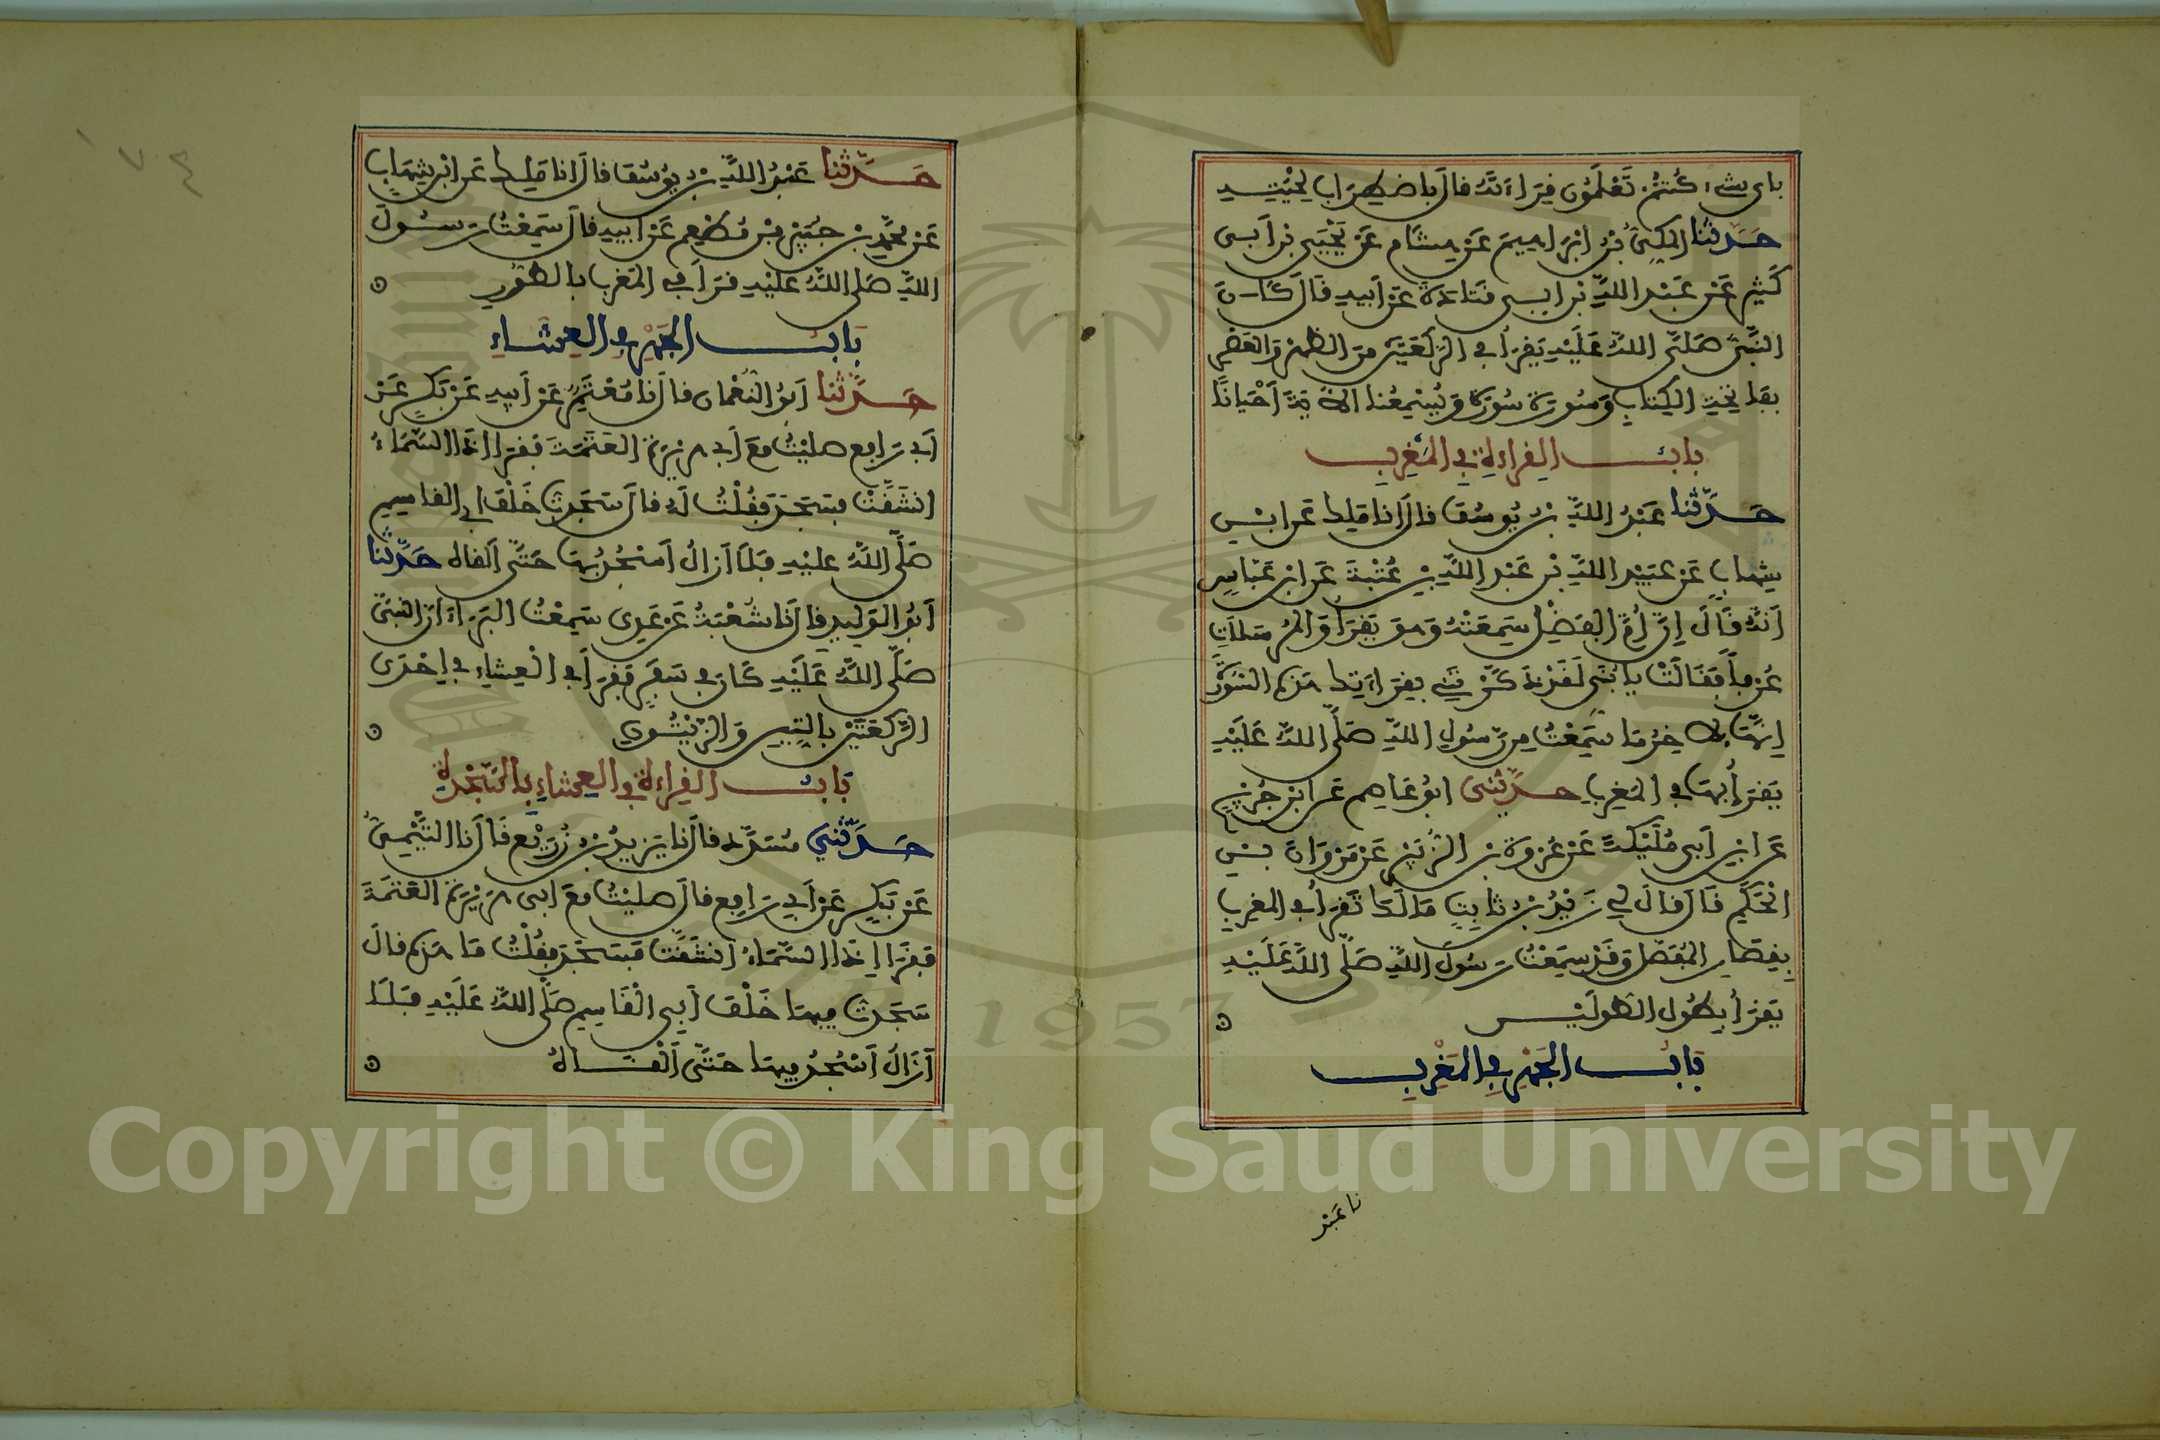 باي شيء كُنْتُمْ تَعْلَمُونَ قِرَاءَتَهُ قَالَ بِاضْطِرَابِ لِحْيَتِهِ
حَدَّثَنَا الْمَكِّيُّ بْنُ إِبْرَاهِيمَ عَنْ هِشَامٍ عَنْ يَحْيَى بْنِ أَبِي
كَثِيرٍ عَنْ عَبْدِ اللَّهِ بْنِ أَبِي قَتَادَةَ عَنْ أَبِيهِ قَالَ كَانَ
النَّبِيُّ صَلَّى اللَّهُ عَلَيْهِ يَقْرَأُ فِي الرَّكْعَتَيْنِ مِنَ الظُّهْرِ وَالْعَصْرِ
بِفَاتِحَةِ الْكِتَابِ وَسُورَةٍ سُورَةٍ وَيُسْمِعُنَا الْآيَةَ أَحْيَانًا
بَابُ الْقِرَاءَةِ فِي الْمَغْرِبِ
حَدَّثَنَا عَبْدُ اللَّهِ بْنُ يُوسُفَ قَالَ انا مَلِك عَنِ ابْنِ
شِهَابٍ عَنْ عُبَيْدِ اللَّهِ بْنِ عَبْدِ اللَّهِ بْنِ عُتْبَةَ عَنِ ابْنِ عَبَّاسٍ
أَنَّهُ قَالَ إِنَّ أُمَّ الْفَضْلِ سَمِعَتْهُ وَهُوَ يَقْرَأُ وَالْمُرْسَلَاتِ
عُرْفاً فَقَالَتْ يَا بُنَيَّ لَقَدْ ذَكَّرْتَنِي بِقِرَاءَتِكَ هَذِهِ السُّورَةَ
إِنَّهَا لَآخِرُ مَا سَمِعْتُ مِن رَّسُولِ اللَّهِ صَلَّى اللَّهُ عَلَيْهِ
يَقْرَأُ بِهَا فِي الْمَغْرِبِ حَدَّثَنِي أَبُو عَاصِمٍ عَنِ ابْنِ جُرَيْجٍ
عَنِ ابْنِ أَبِي مُلَيْكَةَ عَنْ عُرْوَةَ بْنِ الزُّبَيْرِ عَنْ مَرْوَانَ بْنِ
الْحَكَمِ قَالَ قَالَ لِي زَيْدُ بْنُ ثَابِتٍ مَا لَكَ تَقْرَأُ فِي الْمَغْرِبِ
بِقِصَارِ الْمُفَصَّلِ وَقَدْ سَمِعْتُ رَسُولَ اللَّهِ صَلَّى اللَّهُ عَلَيْهِ
يَقْرَأُ بِطُولِ الطُّولَيْنِ
بَابُ الْجَهْرِ فِي الْمَغْرِبِ
نا عَبْدُ
حَدَّثَنَا عَبْدُ اللَّهِ بْنُ يُوسُفَ قَالَ انا مَلِك عَنِ ابْنِ شِهَابٍ
عَنْ مُحَمَّدِ بْنِ جُبَيْرِ بْنِ مُطْعِمٍ عَنْ أَبِيهِ قَالَ سَمِعْتُ رَسُولَ
اللَّهِ صَلَّى اللَّهُ عَلَيْهِ قَرَأَ فِي الْمَغْرِبِ بِالطُّورِ
بَابُ الْجَهْرِ فِي الْعِشَاءِ
حَدَّثَنَا أَبُو النُّعْمَانِ قَالَ نا مُعْتَمِرٌ عَنْ أَبِيهِ عَنْ بَكْرٍ عَنْ
أَبِي رَافِعٍ صَلَيْتُ مَعَ أَبِي هُرَيْرَةَ الْعَتَمَةَ فَقَرَأَ إِذَا السَّمَاءُ
انْشَقَّتْ فَسَجَدَ فَقُلْتُ لَهُ قَالَ سَجَدْتُ خَلْفَ أَبِي الْقَاسِمِ
صَلَّى اللَّهُ عَلَيْهِ فَلَا أَزَالُ أَسْجُدُ بِهَا حَتَّى أَلْقَاهُ حَدَّثَنَا
أَبُو الْوَلِيدِ قَالَ نا شُعْبَةُ عَنْ عَدِيٍّ سَمِعْتُ الْبَرَاءَ أَنَّ النَّبِيَّ
صَلَّى اللَّهُ عَلَيْهِ كَانَ فِي سَفَرٍ فَقَرَأَ فِي الْعِشَاءِ فِي إِحْدَى
الرَّكْعَتَيْنِ بِالتِّينِ وَالزَّيْتُونِ
بَابُ الْقِرَاءَةِ فِي الْعِشَاءِ بِالسَّجْدَةِ
حَدَّثَنِي مُسَدَّدٌ قَالَ نا يَزِيدُ بْنُ زُرَيْعٍ قَالَ نا التَّيْمِيُّ
عَنْ بَكْرٍ عَنْ أَبِي رَافِعٍ قَالَ صَلَيْتُ مَعَ أَبِي هُرَيْرَةَ الْعَتَمَةَ
فَقَرَأَ إِذَا السَّمَاءُ انْشَقَّتْ فَسَجَدَ فَقُلْتُ مَا هَذِهِ قَالَ
سَجَدْتُ فِيهَا خَلْفَ أَبِي الْقَاسِمِ صَلَّى اللَّهُ عَلَيْهِ فَلَا
أَزَالُ أَسْجُدُ فِيهَا حَتَّى أَلْقَاهُ
1957
Copyright © King Saud University